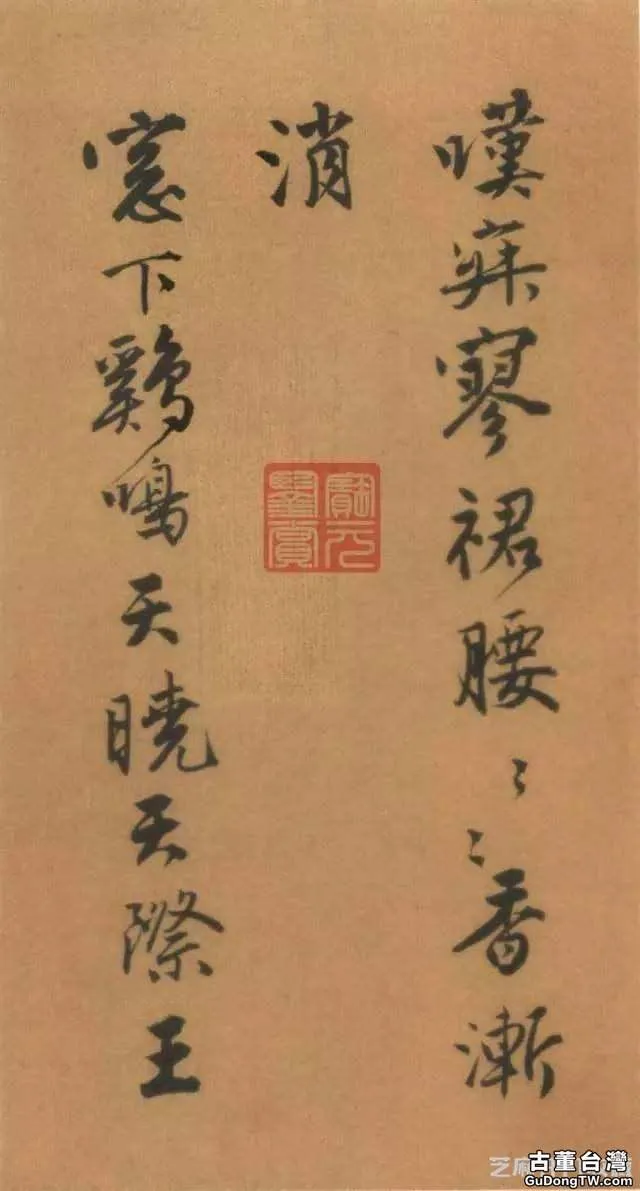 嘆寂寥裙腰〻〻香漸
消
窓下鷄鳴天曉天際王
鑒賞
古董台灣
GuDongTW.com